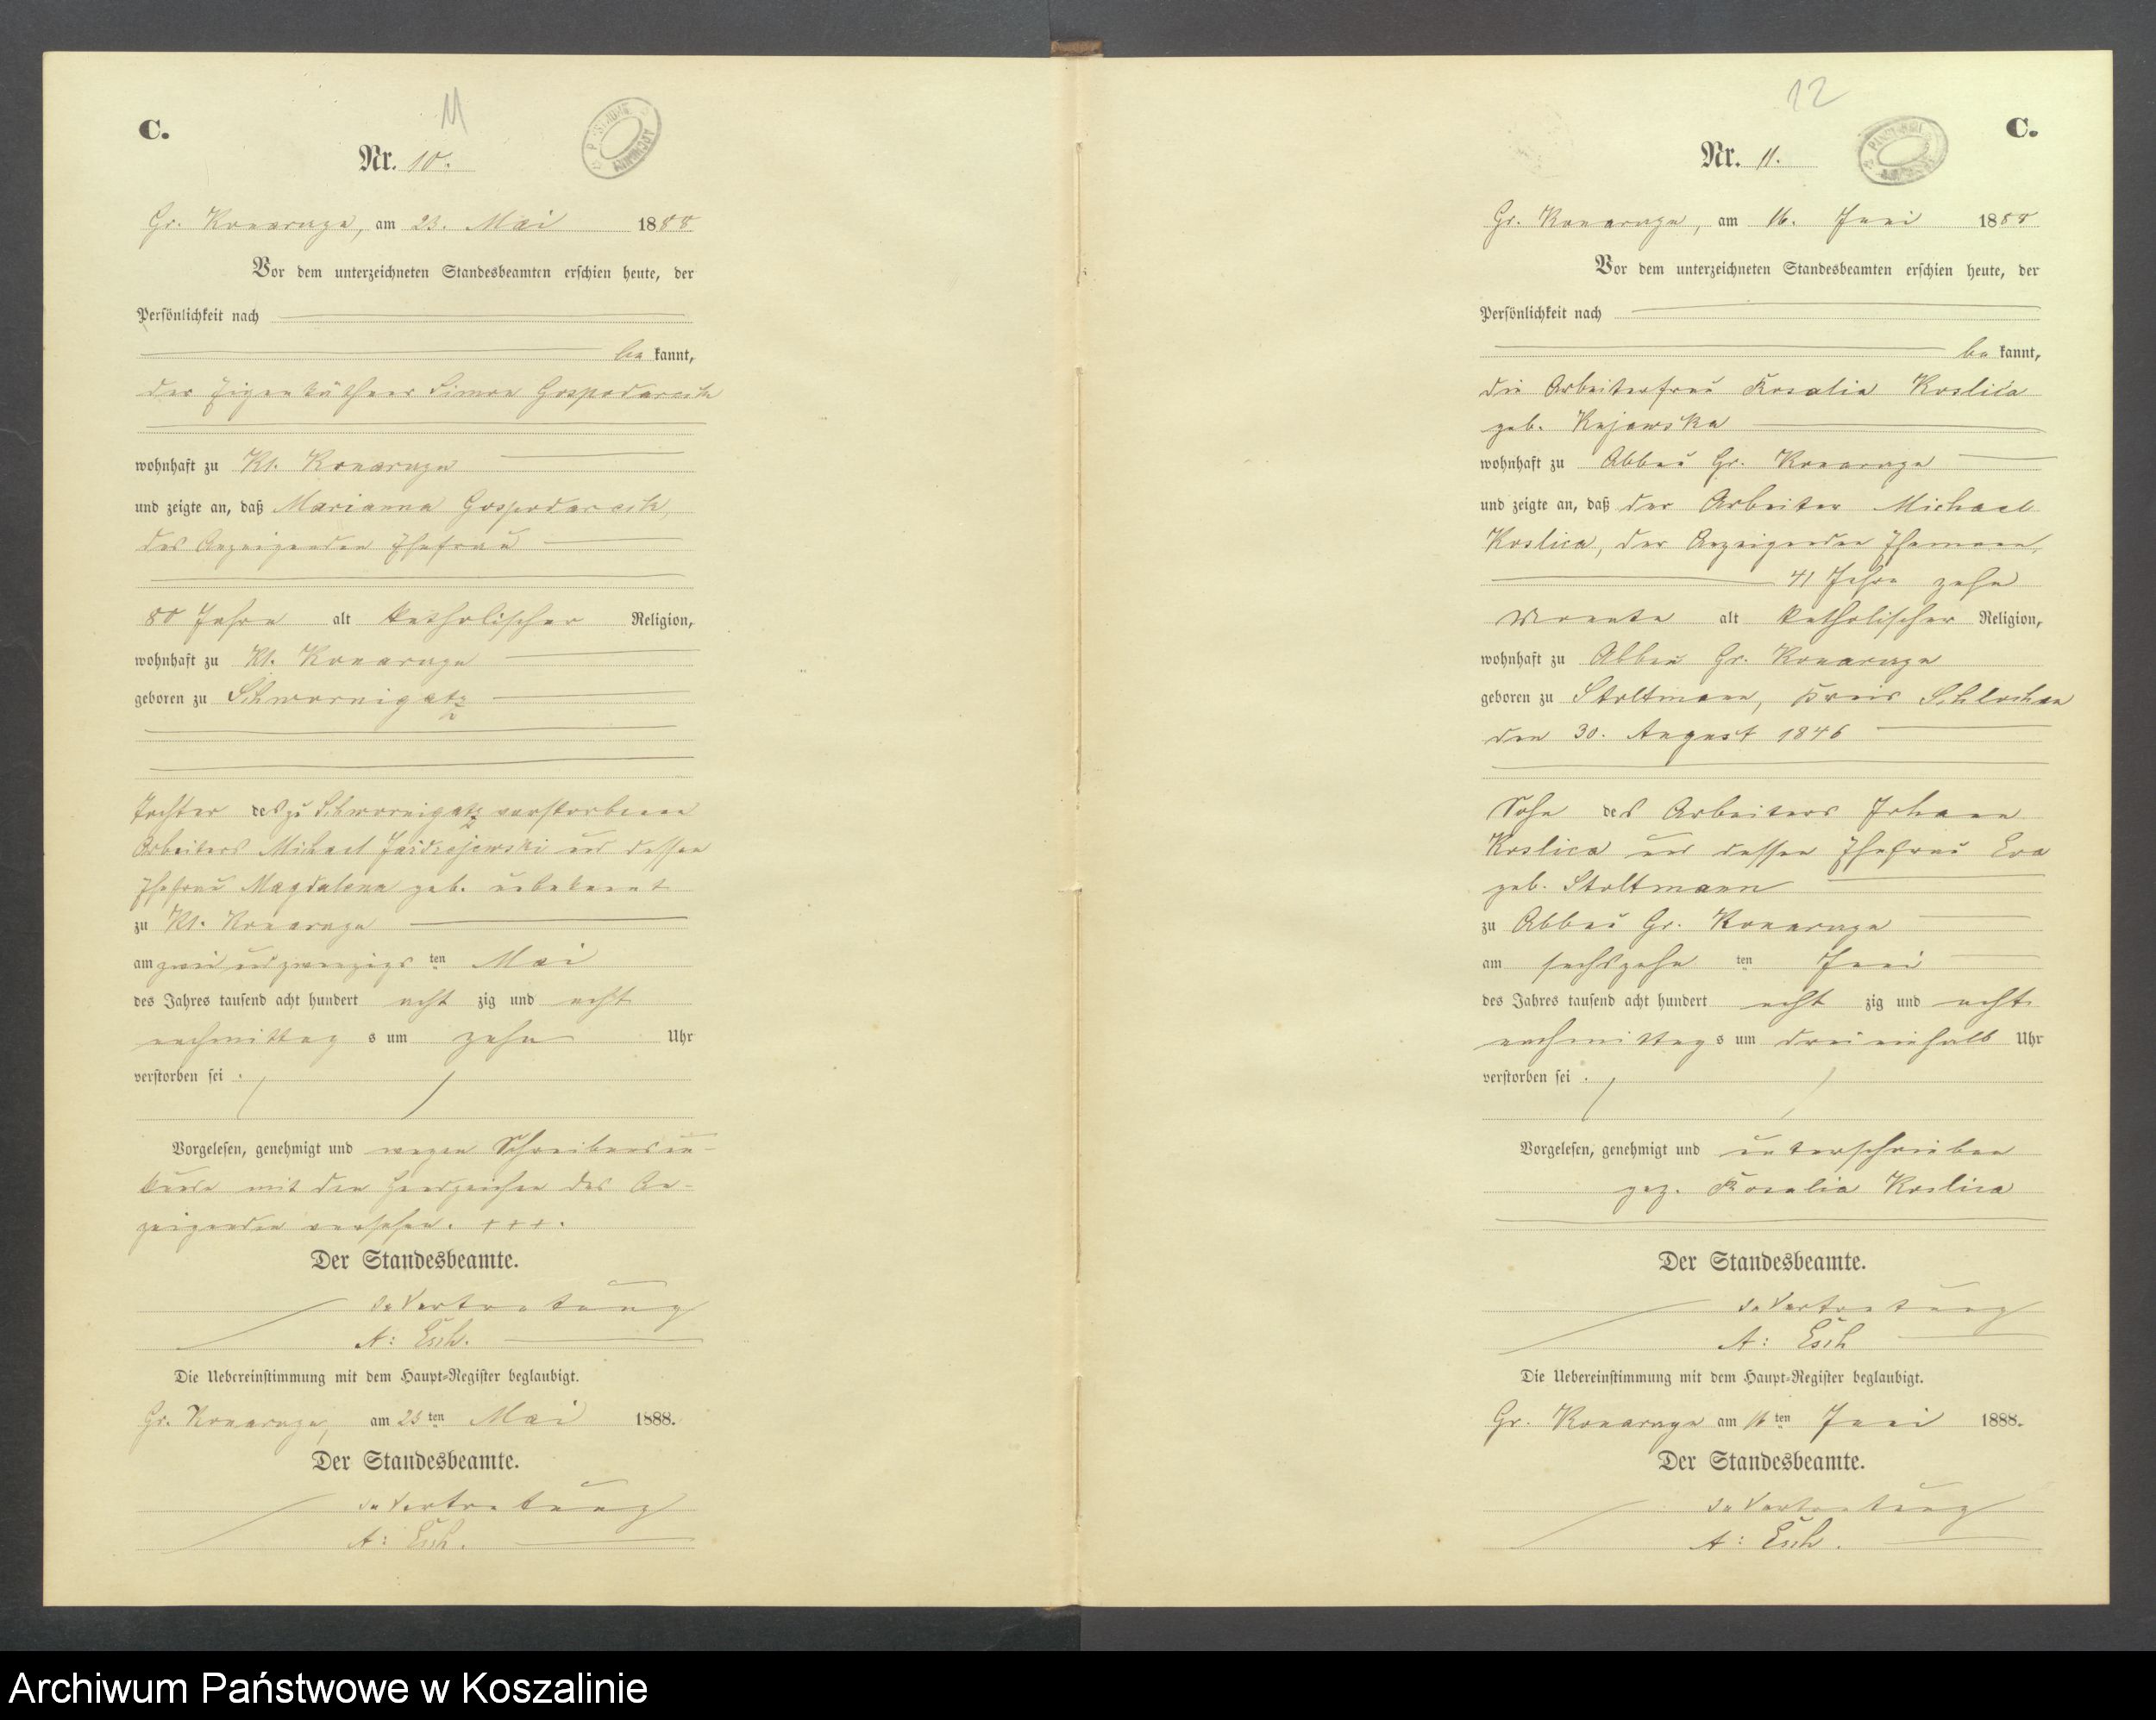 11
C.
Nr. 10.
Gr. Konarzyn, am 23. Mai 1888
Vor dem unterzeichneten Standesbeamten erschien heute, der
Persönlichkeit nach
be kannt,
der Eigenkäthner Simon Gospodarcik
wohnhaft zu Kl. Konarzyn
und zeigte an, daß Marianna Gospodarcik,
des Anzeigenden Ehefrau
80 Jahre alt katholischer Religion,
wohnhaft zu Kl. Konarzyn
geboren zu Schwornigatz
Tochter des zu Schwornigatz verstorbenen
Arbeiters Michael und dessen
Ehefrau Magdalena geb. unbekannt
zu Kl. Konarzyn
am zwei und zwanzigs ten Mai
des Jahres tausend acht hundert acht zig und acht
nachmittag s um zehn Uhr
verstorben sei.
Vorgelesen, genehmigt und wegen Schreibensun-
kunde mit den Handzeichen des An-
zeigenden versehen. +++.
Der Standesbeamte.
In Vertretung
A: Esch.
Die Uebereinstimmung mit dem Haupt-Register beglaubigt.
Gr. Konarzyn, am 23 ten Mai 1888.
Der Standesbeamte.
In Vertretung
A: Esch.
12
C.
Nr. 11.
Gr. Konarzyn, am 16. Juni 1888
Vor dem unterzeichneten Standesbeamten erschien heute, der
Persönlichkeit nach
be kannt,
die Arbeiterfrau Rosalia Koslica
geb. Kujawska
wohnhaft zu Abbau Gr. Konarzyn
und zeigte an, daß der Arbeiter Michael
Koslica, der Anzeigenden Ehemann,
41 Jahre zehn
Monate alt katholischer Religion,
wohnhaft zu Abbau Gr. Konarzyn
geboren zu Stoltmann, Kreis Schlochau
den 30. August 1846
Sohn des Arbeiters Johann
Koslica und dessen Ehefrau Eva
geb. Stoltmann
zu Abbau Gr. Konarzyn
am sechszehn ten Juni
des Jahres tausend acht hundert acht zig und acht
nachmittag s um drei einhalb Uhr
verstorben sei.
Vorgelesen, genehmigt und unterschrieben
gez. Rosalia Koslica
Der Standesbeamte.
In Vertretung
A: Esch
Die Uebereinstimmung mit dem Haupt-Register beglaubigt.
Gr. Konarzyn am 16 ten Juni 1888.
Der Standesbeamte.
In Vertretung
A: Esch.
Archiwum Państwowe w Koszalinie